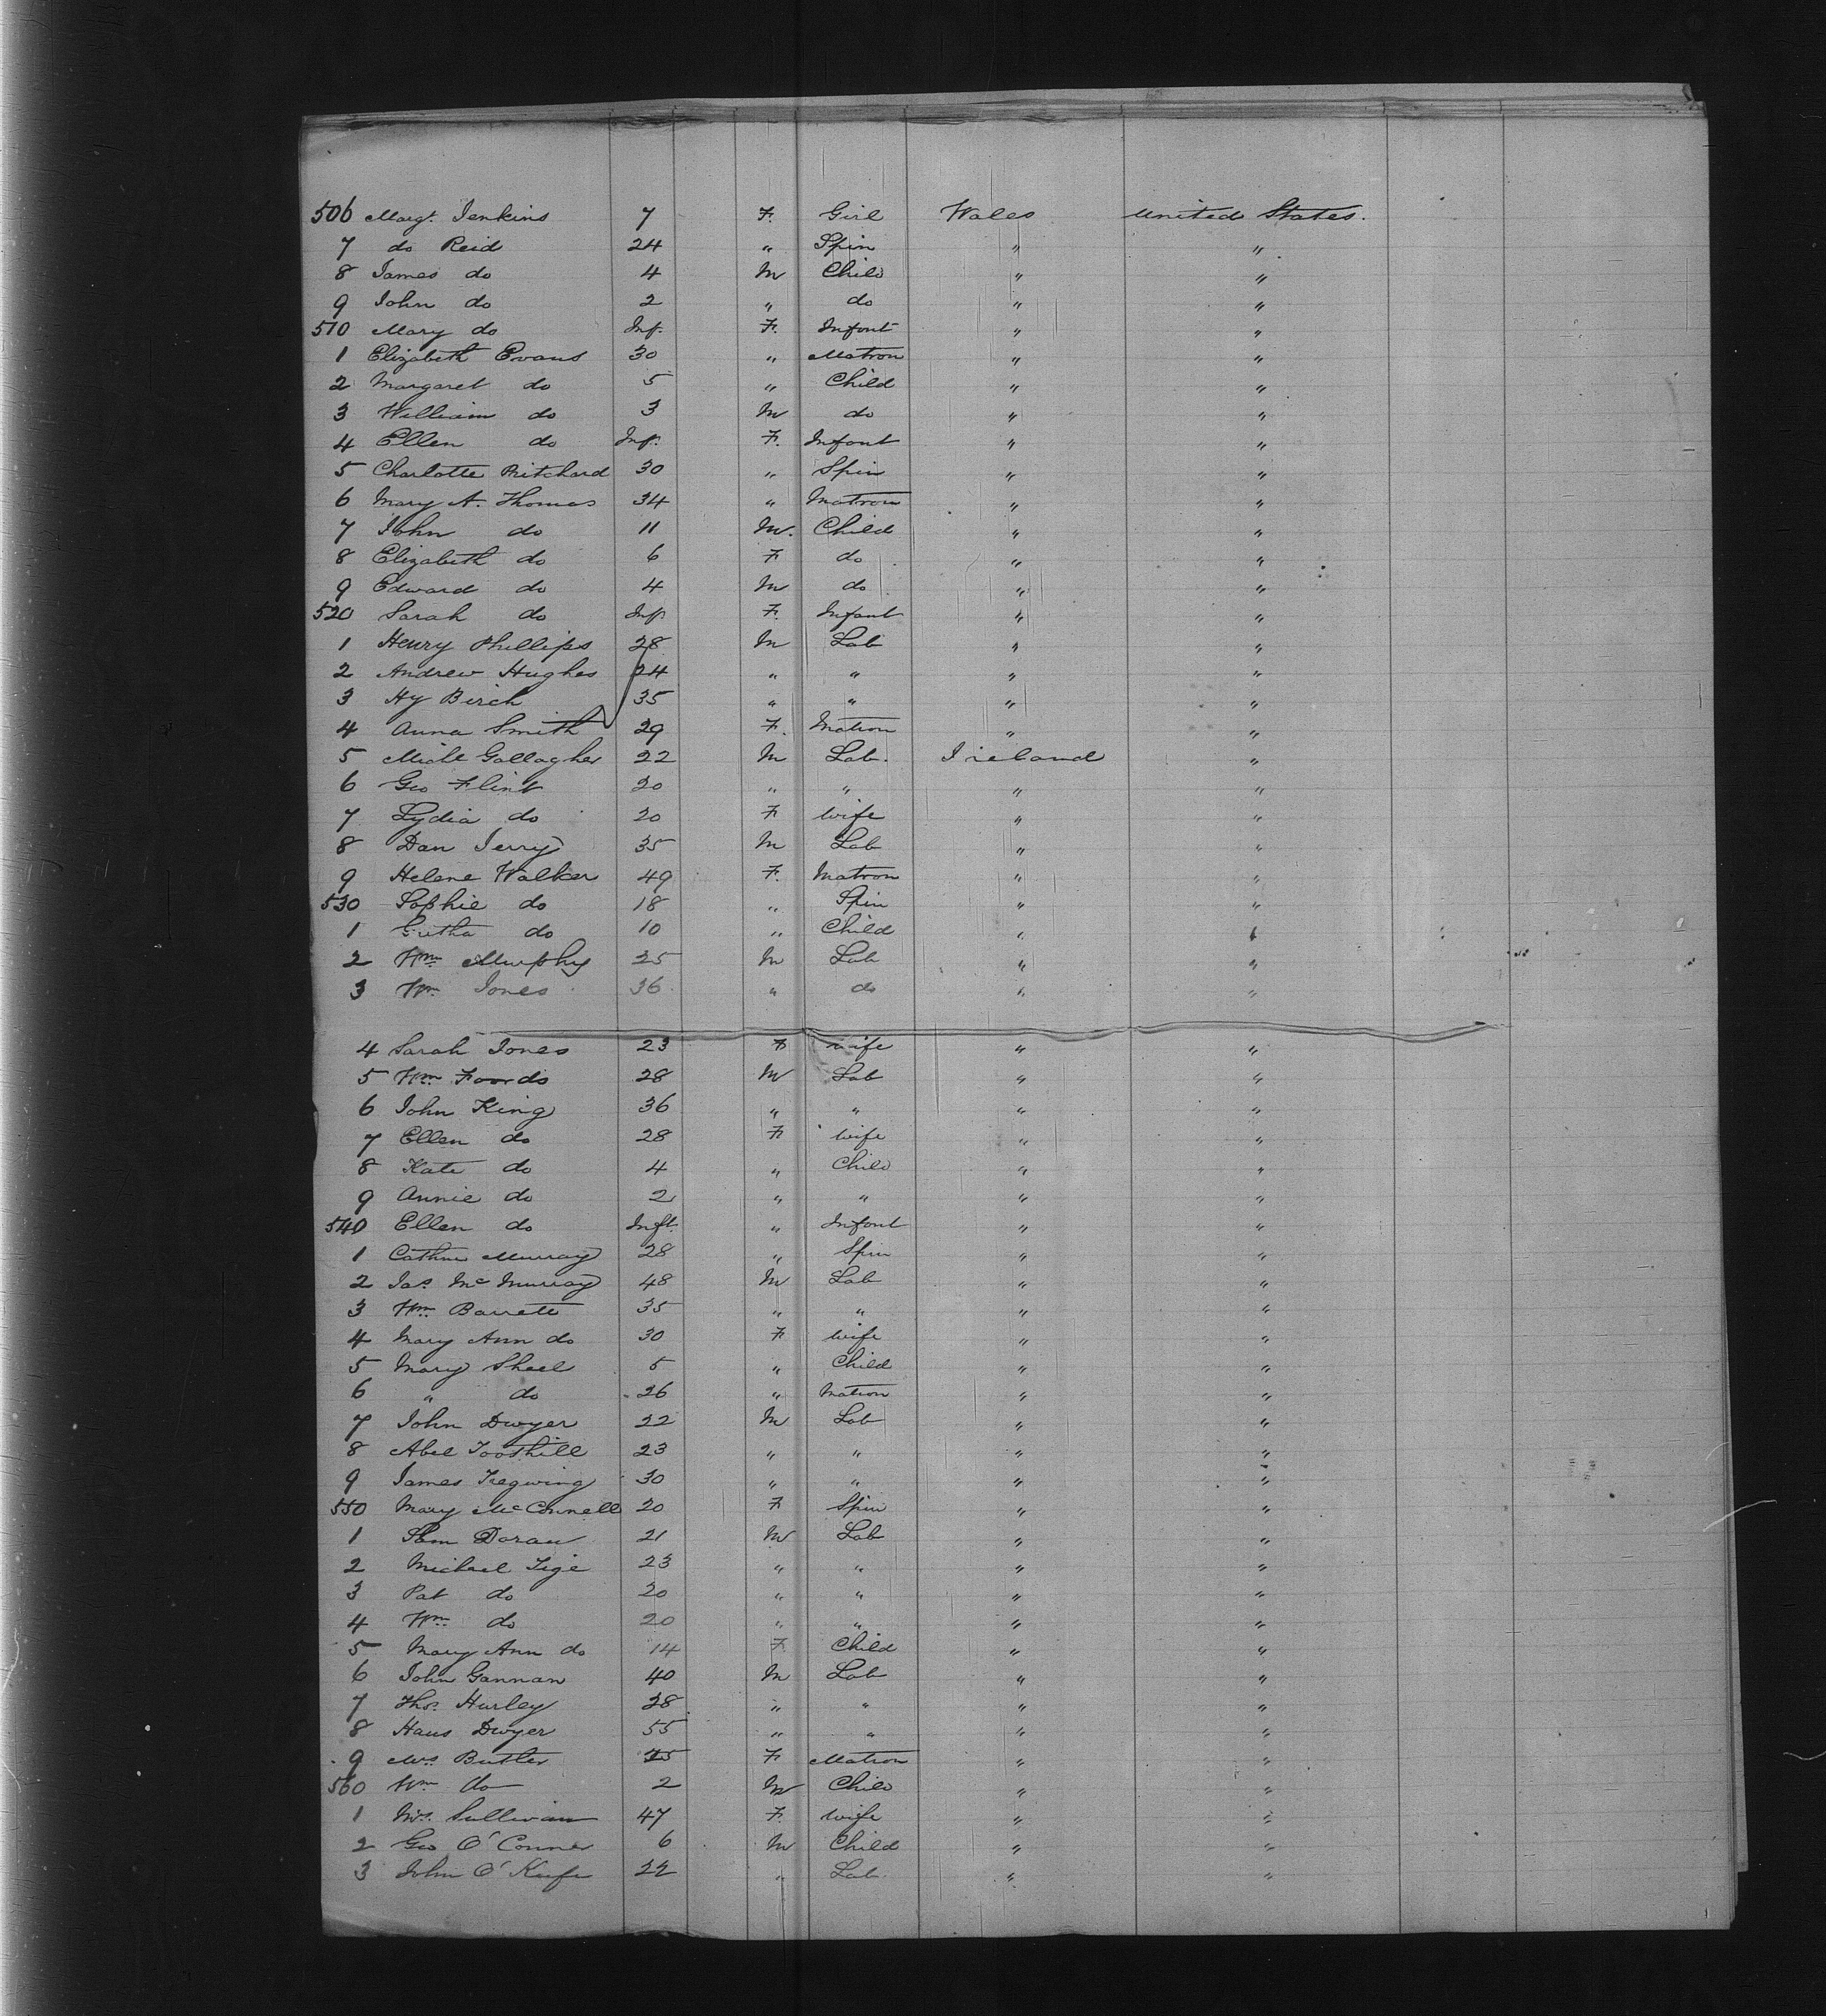 506 Margt. Jenkins 7 F. Girl Wales United States.
7 do Reid 24 " Spin " "
8 James do 4 M Child " "
9 John do 2 " do " "
510 Mary do Inf. F. Infant " "
1 Elizabeth Evans 30 " Matron " "
2 Margaret do 5 " Child " "
3 William do 3 M do " "
4 Ellen do Inf. F. Infant " "
5 Charlotte Pritchard 30 " Spin " "
6 Mary A. Thomas 34 " Matron " "
7 John do 11 M. Child " "
8 Elizabeth do 6 F do " "
9 Edward do 4 M do " "
520 Sarah do Inf. F. Infant " "
1 Henry Phillips 28 M Lab " "
2 Andrew Hughes 24 " " " "
3 Hy Birch 35 " " " "
4 Anna Smith 29 F. Matron " "
5 Michl Gallagher 22 M Lab. Ireland "
6 Geo Flint 20 " " " "
7 Lydia do 20 F Wife " "
8 Dan Jerry 35 M Lab " "
9 Helene Walker 49 F. Matron " "
530 Sophie do 18 " Spin " "
1 Gretha do 10 " Child " "
2 Wm Murphy 25 M Lab " "
3 Wm Jones 36 " do " "
4 Sarah Jones 23 F Wife " "
5 Wm Foords 28 M Lab " "
6 John King 36 " " " "
7 Ellen do 28 F Wife " "
8 Kate do 4 " Child " "
9 Annie do 2 " " " "
540 Ellen do Inft. " Infant " "
1 Cathne Murray 28 " Spin " "
2 Jas. Mc Murray 48 M Lab " "
3 Wm Barrett 35 " " " "
4 Mary Ann do 30 F Wife " "
5 Mary Sheel 5 " Child " "
6 " do 26 " Matron " "
7 John Dwyer 22 M Lab " "
8 Abel Toothill 23 " " " "
9 James Tregwing 30 " " " "
550 Mary McConnell 20 F Spin " "
1 Sam Doran 21 M Lab " "
2 Michael Tige 23 " " " "
3 Pat do 20 " " " "
4 Wm do 20 " " " "
5 Mary Ann do 14 F Child " "
6 John Gannan 40 M Lab " "
7 Thos. Hurley 28 " " " "
8 Hans Dwyer 55 " " " "
9 Mrs Butler F Matron " "
560 Wm do 2 M Child " "
1 Mrs. Sullivan 47 F. Wife " "
2 Geo O'Conner 6 M Child " "
3 John O'Keefe 22 " Lab. " "